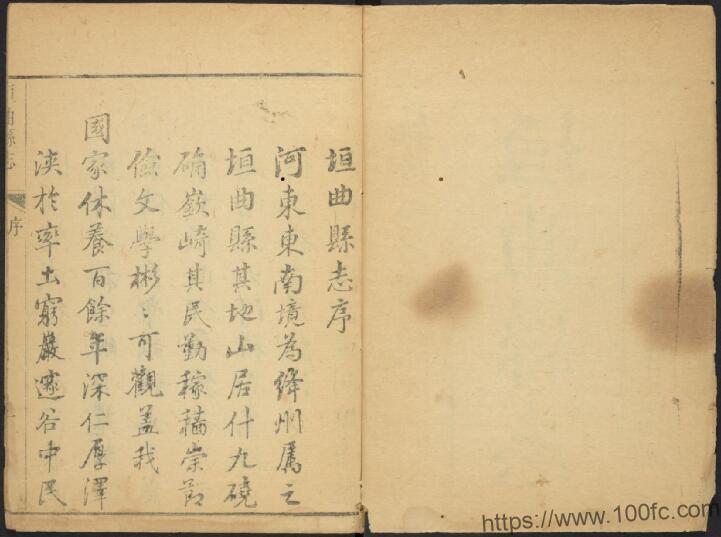 垣曲縣志序
河東東南境為絳州属之
垣曲縣其地山居什九磽
确嶔崎其民勤稼穡崇節
儉文學彬〻可觀蓋我
國家休養百餘年深仁厚澤
浹於率土窮巖邃谷中民
垣曲縣志
序
https://www.100fc.com